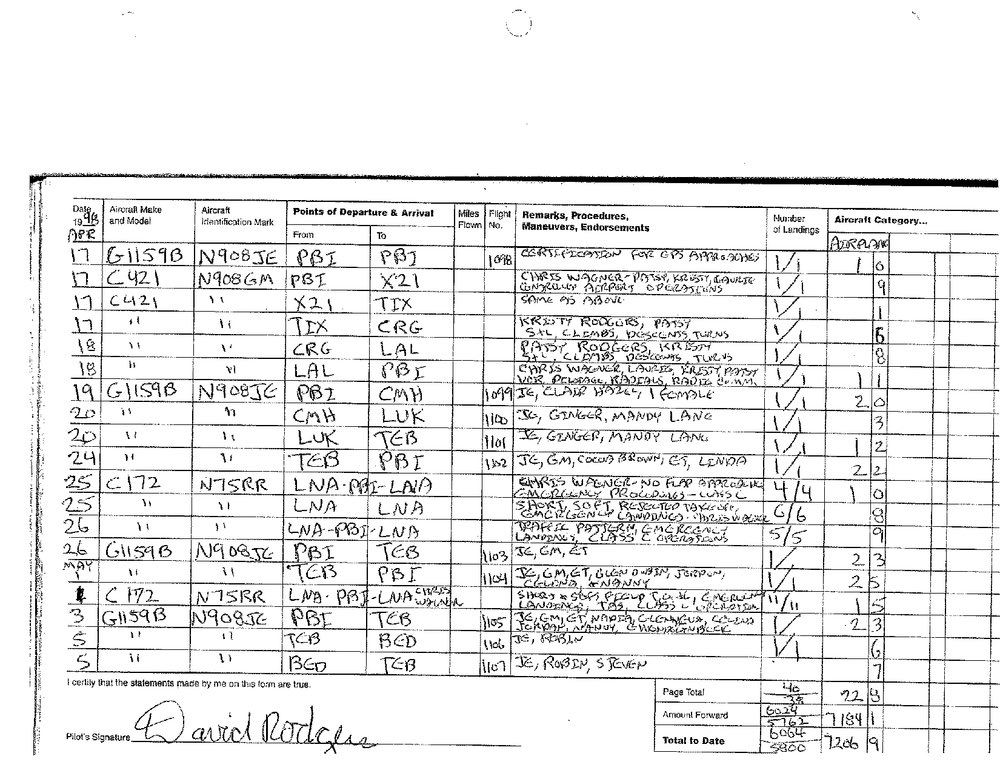 Date Aircraft Make Aircraft Points of Departure & Arrival Miles Flight Remarks, Procedures, Number Aircraft Category...
1998 and Model Identification Mark From To Flown No. Maneuvers, Endorsements of Landings
APR AIRPLANE
17 G1159B N908JE PBI PBI 1098 CERTIFICATION FOR GPS APPROACHES 1/1 1 0
17 C421 N908GM PBI X21 CHRIS WAGNER-PATSY, KRISTY, LAURIE 1/1 9
AIRPORT OPERATIONS
17 C421 " X21 TIX SAME AS ABOVE 1/1 1
17 " " TIX CRG KRISTY RODGERS, PATSY 1/1
S+L, CLIMBS, DESCENTS TURNS
18 " " CRG LAL PATSY RODGERS, KRISTY 1/1 8
S+L, CLIMBS, DESCENTS, TURNS
18 " " LAL PBI CHRIS WAGNER, LAURIE, KRISTY, PATSY 1/1 1 1
VOR RADIALS, RADIO COMM.
19 G1159B N908JE PBI CMH 1099 JE, CLAIR HAZEL, 1 FEMALE 1/1 2 0
20 " " CMH LUK 1100 JE, GINGER, MANDY LANG 1/1 3
20 " " LUK TEB 1101 JE, GINGER, MANDY LANG 1/1 1 2
24 " " TEB PBI 1102 JE, GM, COCOA BROWN, ET, LINDA 1/1 2 2
25 C172 N75RR LNA-PBI-LNA CHRIS WAGNER-NO FLAP APPROACH 4/4 1 0
EMERGENCY PROCEDURES-CLASS C
25 " " LNA LNA SHORT, SOFT REJECTED TAKEOFF, 6/6 8
EMERGENCY LANDINGS-CHRIS WAGNER
26 " " LNA-PBI-LNA TRAFFIC PATTERN, EMERGENCY 5/5 9
LANDING, CLASS C OPERATIONS
26 G1159B N908JE PBI TEB 1103 JE, GM, ET 1/ 2 3
MAY
1 " " TEB PBI 1104 JE, GM, ET, GLEN DUBIN, JORDAN, 1/1 2 5
CELINA, +NANNY
1 C172 N75RR LNA-PBI-LNA CHRIS WAGNER SHORT & SOFT FIELD 11/11 1 5
LANDINGS, CLASS C OPERATION
3 G1159B N908JE PBI TEB 1105 JE, GM, ET, NADIA, CELINA 1/ 2 3
JORDAN, NANNY,
5 " " TEB BED 1106 JE, ROBIN 1/1 6
5 " " BED TEB 1107 JE, ROBIN, STEVEN 7
I certify that the statements made by me on this form are true.
Page Total 40 38 22
Amount Forward 6024 5762 7184 1
Pilot's Signature David Rodgers
Total to Date 6064 5800 7206 9